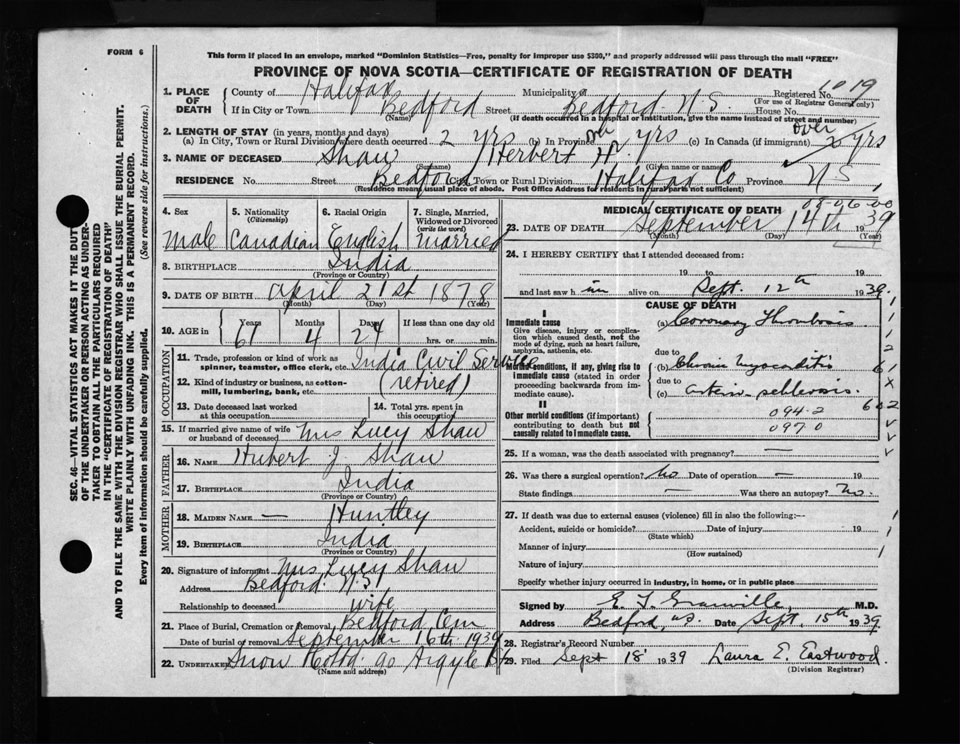 FORM 6
This form if placed in an envelope, marked "Dominion Statistics—Free, penalty for improper use $300," and properly addressed will pass through the mail "FREE"
PROVINCE OF NOVA SCOTIA—CERTIFICATE OF REGISTRATION OF DEATH
SEC. 46—VITAL STATISTICS ACT MAKES IT THE DUTY
OF THE UNDERTAKER OR PERSON ACTING AS UNDER-
TAKER TO OBTAIN ALL THE PARTICULARS REQUIRED
IN THE "CERTIFICATE OF REGISTRATION OF DEATH"
AND TO FILE THE SAME WITH THE DIVISION REGISTRAR WHO SHALL ISSUE THE BURIAL PERMIT.
WRITE PLAINLY WITH UNFADING INK. THIS IS A PERMANENT RECORD.
Every item of information should be carefully supplied. (See reverse side for instructions.)
1. PLACE OF DEATH County of Halifax Municipality of Registered No. 1019
(For use of Registrar General only)
If in City or Town Bedford Street Bedford. N.S. House No.
(Name) (If death occurred in a hospital or institution, give the name instead of street and number)
2. LENGTH OF STAY (in years, months and days)
(a) In City, Town or Rural Division where death occurred 2 yrs (b) In Province yrs (c) In Canada (if immigrant) over yrs
3. NAME OF DECEASED Shaw Herbert H.
(Surname) (Given name or names)
RESIDENCE No. Street Bedford City, Town or Rural Division Halifax Co Province N.S.
(Residence means usual place of abode. Post Office Address for residents in rural parts not sufficient)
4. Sex Male
5. Nationality (Citizenship) Canadian
6. Racial Origin English
7. Single, Married, Widowed or Divorced (write the word) Married
8. BIRTHPLACE India
(Province or Country)
9. DATE OF BIRTH April 21st 1878
(Month) (Day) (Year)
10. AGE in Years 61 Months 4 Days 24 If less than one day old
hrs. or min.
OCCUPATION
11. Trade, profession or kind of work as spinner, teamster, office clerk, etc. India Civil Service
12. Kind of industry or business, as cotton-mill, lumbering, bank, etc. (retired)
13. Date deceased last worked at this occupation
14. Total yrs. spent in this occupation
15. If married give name of wife or husband of deceased Mrs Lucy Shaw
FATHER
16. NAME Hubert J Shaw
17. BIRTHPLACE India
(Province or Country)
MOTHER
18. MAIDEN NAME — Huntley
19. BIRTHPLACE India
(Province or Country)
20. Signature of informant Mrs Lucy Shaw
Address Bedford N.S.
Relationship to deceased wife
21. Place of Burial, Cremation or Removal Bedford Cem
Date of burial or removal September 16th 1939
22. UNDERTAKER Snow 90 Argyle St
(Name and address)
MEDICAL CERTIFICATE OF DEATH
23. DATE OF DEATH September 14th 1939
(Month) (Day) (Year)
24. I HEREBY CERTIFY that I attended deceased from:
19 to 19
and last saw him alive on Sept. 12th 1939.
CAUSE OF DEATH
I
Immediate cause
Give disease, injury or complication which caused death, not the mode of dying, such as heart failure, asphyxia, asthenia, etc.
(a) Coronary Thrombosis
due to
Morbid conditions, if any, giving rise to immediate cause (stated in order proceeding backwards from immediate cause).
(b) Chronic myocarditis
due to
(c) arterio sclerosis.
II
Other morbid conditions (if important) contributing to death but not causally related to immediate cause.
094-2
097 0
25. If a woman, was the death associated with pregnancy? —
26. Was there a surgical operation? No Date of operation —
State findings — Was there an autopsy? No.
27. If death was due to external causes (violence) fill in also the following:—
Accident, suicide or homicide? Date of injury 19
(State which)
Manner of injury
(How sustained)
Nature of injury
Specify whether injury occurred in industry, in home, or in public place
Signed by E. T. Granville, M.D.
Address Bedford, N.S. Date Sept. 15th 1939
28. Registrar's Record No.
29. Filed Sept 18 1939 Laura E. Eastwood.
(Division Registrar)